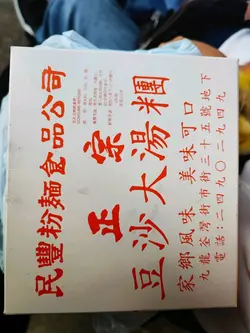 民豐粉麵食品公司
正宗
豆沙大湯糰
家鄉風味 美味可口
九龍荃灣街市街三十五號地下
電話：二四九〇二九四九